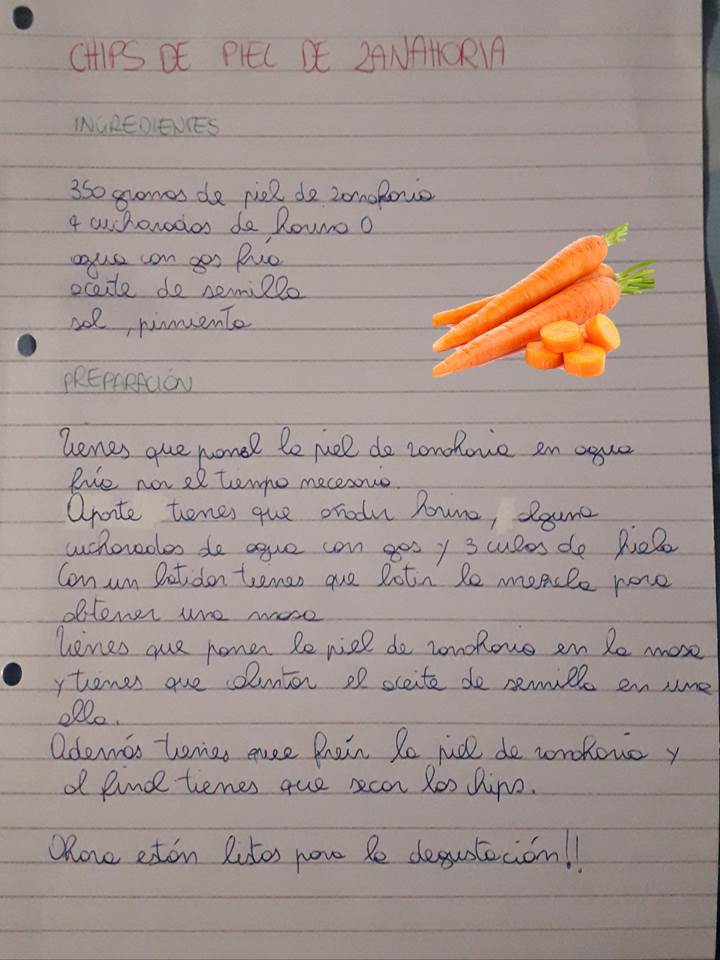 CHIPS DE PIEL DE ZANAHORIA
INGREDIENTES
350 gramos de piel de zanahoria
4 cucharadas de harina 0
agua con gas fría
aceite de semilla
sal, pimienta
PREPARACIÓN
Tienes que poner la piel de zanahoria en agua
fría por el tiempo necesario.
Aparte tienes que añadir harina, alguna
cucharadas de agua con gas y 3 culos de hielo
Con un batidor tienes que batir la mezcla para
obtener una masa
Tienes que poner la piel de zanahoria en la masa
y tienes que calentar el aceite de semilla en una
olla.
Además tienes que freír la piel de zanahoria y
al final tienes que secar las chips.
Ahora están listas para la degustación!!